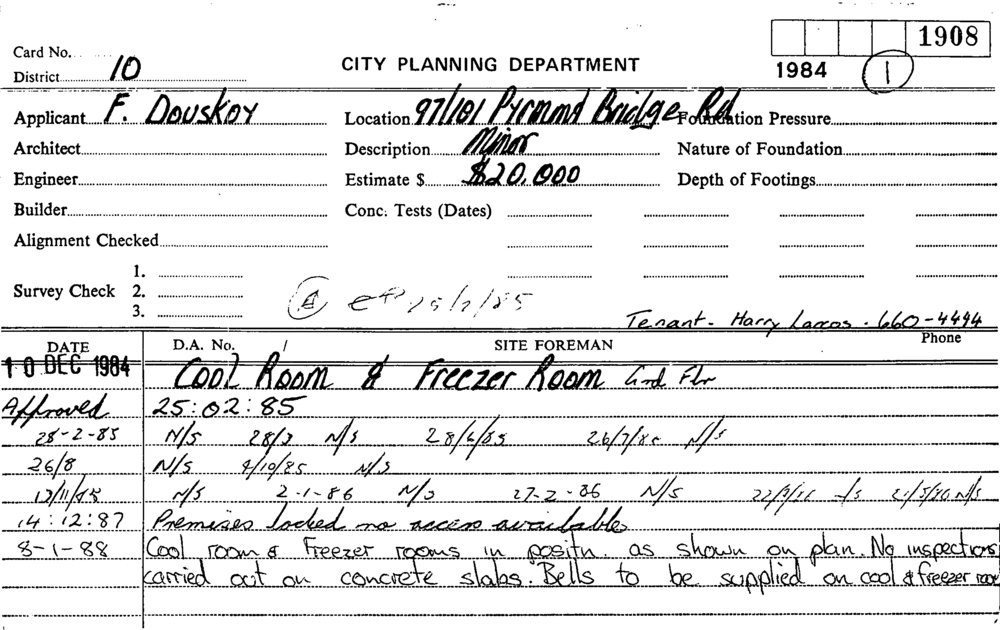 1908
Card No.
District 10
CITY PLANNING DEPARTMENT
1984 1
Applicant F. Douskoy Location 97/101 Pyrmond Bridge Rd Foundation Pressure
Architect Description Minor Nature of Foundation
Engineer Estimate $ $20,000 Depth of Footings
Builder Conc. Tests (Dates)
Alignment Checked
1.
Survey Check 2.
3.
Tenant - Harry Lascos - 660-4494
DATE D.A. No. / SITE FOREMAN Phone
10 DEC 1984 Cool Room & Freezer Room Grd Flr
Approved 25:02:85
28-2-85 N/S 28/3 N/S 28/6/85 N/S
26/8 N/S 9/10/85 N/S
N/S 2-1-86 N/S 27-2-86 N/S
14:12:87 Premises locked no access available
8-1-88 Cool room & Freezer rooms in positn. as shown on plan. No inspections
carried out on concrete slabs. Bells to be supplied on cool & freezer room